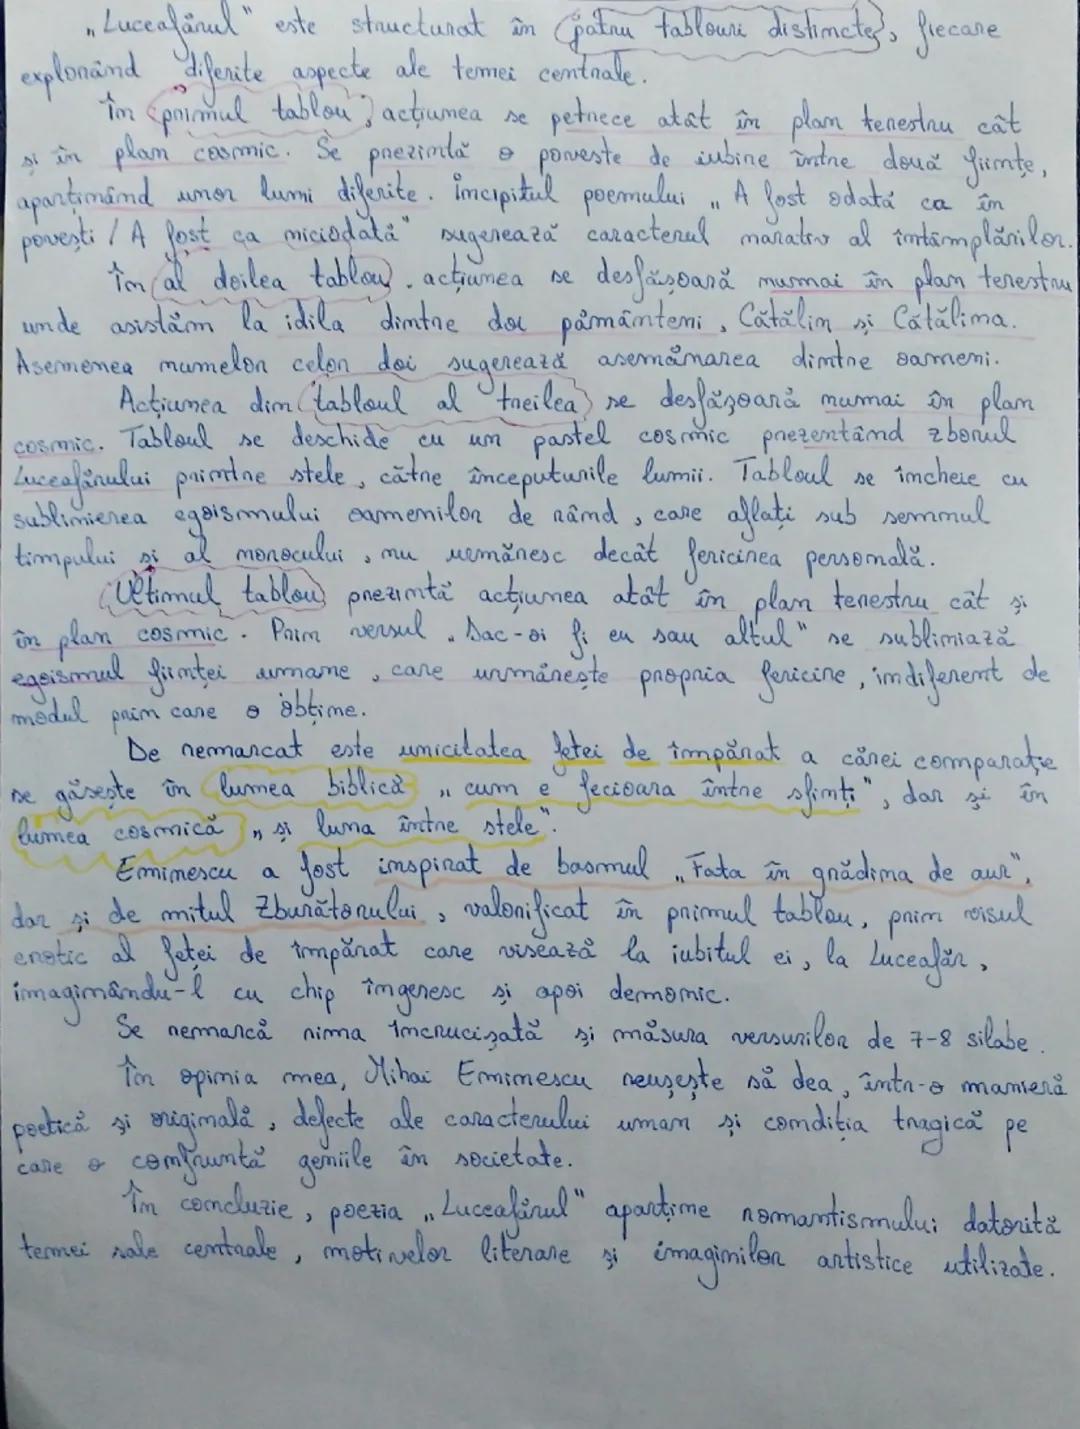 „Luceafărul" este structurat în patru tablouri distincte, fiecare
explorând diferite aspecte ale temei centrale.
În primul tablou, acțiunea se petrece atât în plan terestru cât
și în plan cosmic. Se prezintă o poveste de iubire între două ființe,
aparținând unor lumi diferite. Incipitul poemului „A fost odată ca în
povești / A fost ca niciodată" sugerează caracterul narativ al întâmplărilor.
În al doilea tablou, acțiunea se desfășoară numai în plan terestru
unde asistăm la idila dintre doi pământeni, Cătălin și Cătălina.
Asemenea numelor celor doi sugerează asemănarea dintre oameni.
Acțiunea din tabloul al treilea se desfășoară numai în plan
cosmic. Tabloul se deschide cu un pastel cosmic prezentând zborul
Luceafărului printre stele, către începuturile lumii. Tabloul se încheie cu
sublimierea egoismului oamenilor de rând, care aflați sub semnul
timpului și al norocului, nu urmăresc decât fericirea personală.
Ultimul tablou prezintă acțiunea atât în plan terestru cât și
în plan cosmic. Prin versul „Dac-oi fi eu sau altul" se sublimiază
egoismul ființei umane, care urmărește propria fericire, indiferent de
modul prin care o obține.
De remarcat este unicitatea fetei de împărat a cărei comparație
se găsește în lumea biblică „cum e fecioara între sfinți", dar și în
lumea cosmică „și luna între stele".
Eminescu a fost inspirat de basmul „Fata în grădina de aur",
dar și de mitul Zburătorului, valorificat în primul tablou, prin visul
erotic al fetei de împărat care visează la iubitul ei, la Luceafăr,
imaginându-l cu chip îngeresc și apoi demonic.
Se remarcă rima încrucișată și măsura versurilor de 7-8 silabe.
În opinia mea, Mihai Eminescu reușește să dea, într-o manieră
poetică și originală, defecte ale caracterului uman și condiția tragică pe
care o confruntă geniile în societate.
În concluzie, poezia „Luceafărul" aparține romantismului datorită
temei sale centrale, motivelor literare și imaginilor artistice utilizate.